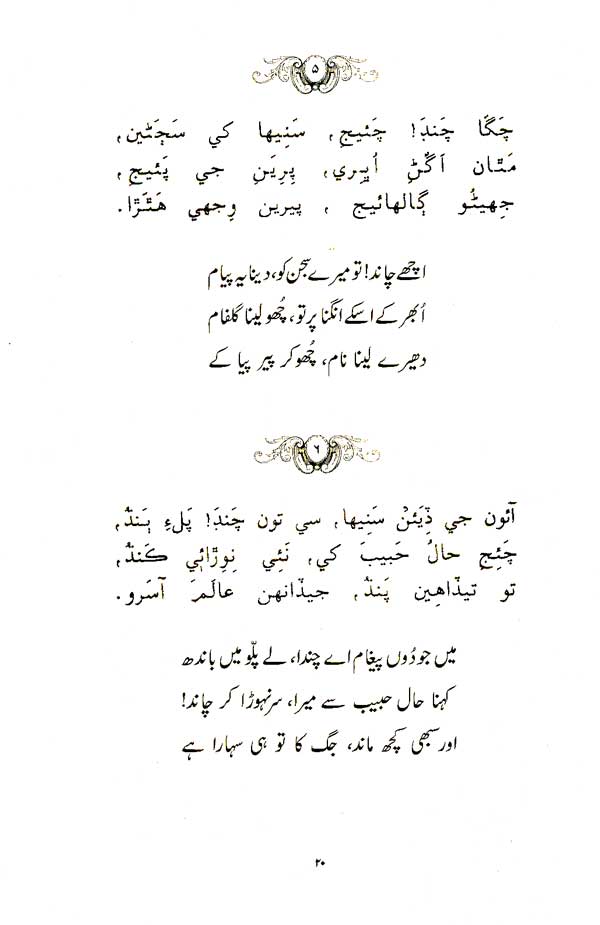 ۵
چَڱا چَنڊَ! چَئيج, سَنِيها کي سَڄَڻين,
مَٿان اَڱَڻِ اُڀِري, پِرِيَنِ جي پَئيج,
جِهيڻُو ڳالهائيج , پيرين وِجهي هَٿَڙا.
اچھے چاند! تو میرے سجن کو، دینا یہ پیام
اُبھر کے اسکے انگنا پر تو، چُھو لینا گلفام
دھیرے لینا نام، چُھوکر پیر پیا کے
۶
آئون جي ڏِيَئن سَنِيها, سي تون چَنڊَ! پَلءِ ٻَنڌُ,
چَئِج حالُ حَبيبَ کي, نَئِي نِوڙائي ڪَنڌُ,
تو تيڏاهين پَنڌُ, جيڏانهن عالَمَ آسَرو.
میں جو دُوں پیغام اے چندا، لے پلّو میں باندھ
کہنا حال حبیب سے میرا، سر نہوڑا کر چاند!
اور سبھی کچھ ماند، جگ کا تو ہی سہارا ہے
۲۰